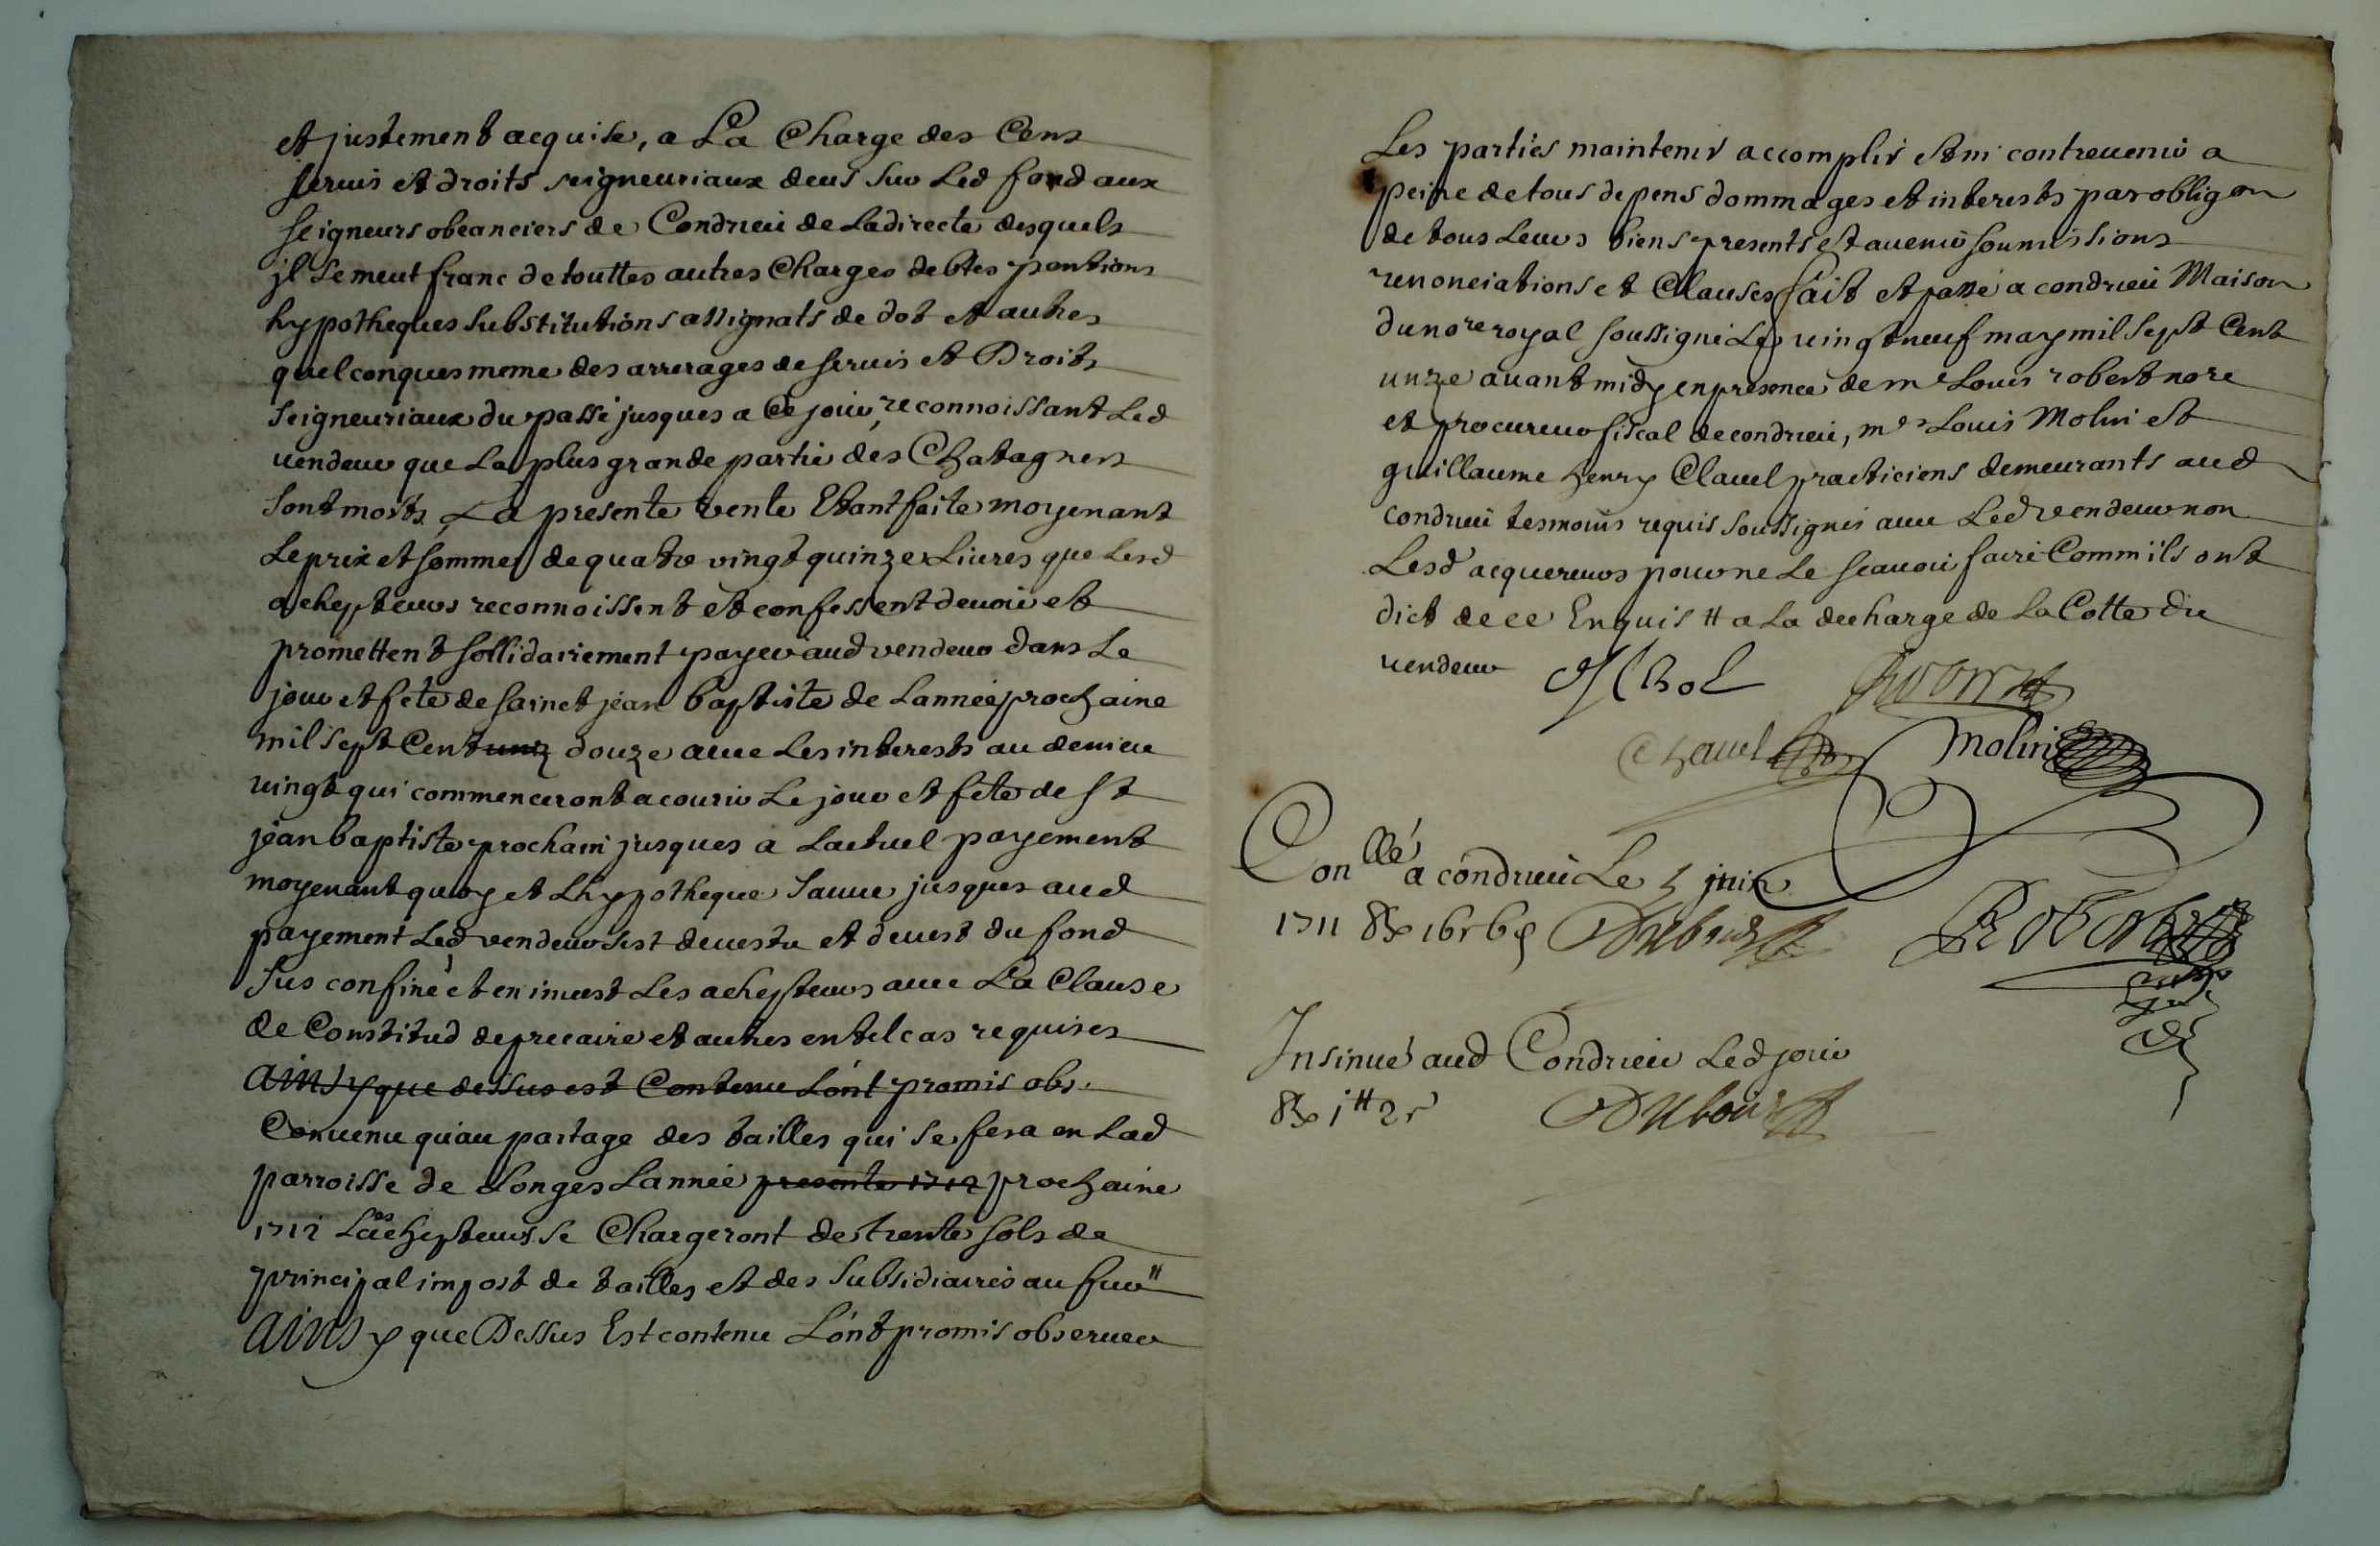 et justement acquise, a La Charge des Cens
servis et droits seigneuriaux deus sur Led fond aux
seigneurs obeanciers de Condrieü de La directe desquels
jl se meut franc de touttes autres Charges debtes pentions
hypotheques substitutions assignats de dot et autres
quelconques meme des arrerages de servis et Droits
seigneuriaux du passé jusques a Ce jour, reconnoissant Led
vendeur que La plus grande partie des Chatagners
sont morts, La presente vente Etant faite moyenant
Le prix et somme de quatre vingt quinze Livres que Lesd
achepteurs reconnoissent et confessent devoir et
promettent sollidairement payer aud vendeur dans Le
jour et fete de sainct jean baptiste de Lannée prochaine
mil sept Cent unz douze avec Les interests au denier
vingt qui commenceront a courir Le jour et fete de st
jean baptiste prochain jusques a Lactuel payement
moyenant quoy et Lhypotheque sauve jusques aud
payement Led vendeur sest devestu et devest du fond
sus confiné et en invest Les achepteurs avec La Clause
de Constitud de precaire et autres en tel cas requises
ainsy que dessus est Contenu Lont promis obs.
Convenu quau partage des tailles qui se fera en Lad
parroisse de Longes Lannée presente 1712 prochaine
1712 Les achepteurs se Chargeront de trente sols de
principal impost de tailles et des subsidiaires au fur //
ainsy que Dessus Est contenu Lont promis observer
Les parties maintenir accomplir et ni contrevenir a
peine de tous depens dommages et interests par obligon
de tous Leurs biens presents et avenir soumissions
renonciations et Clauses fait et passé a condrieü Maison
du nore royal soussigné Le vingt neuf may mil sept Cent
unze avant midy en presence de me Louis robert nore
et procureur fiscal de condrieü, mes Louis Molin et
guillaume henry Clavel practiciens demeurants aud
condrieü tesmoins requis soussignés avec Led vendeur non
Lesd acquereurs pour ne Le scavoir faire Comm ils ont
dict de ce Enquis // a La decharge de La Cotte du
vendeur
Chavel Molin
Conllé a condrieü Le 5 juin
1711 Rx 16s 6d
Robert
Insinué aud Condrieü Led jour
Rx 1tt 2s Dubour